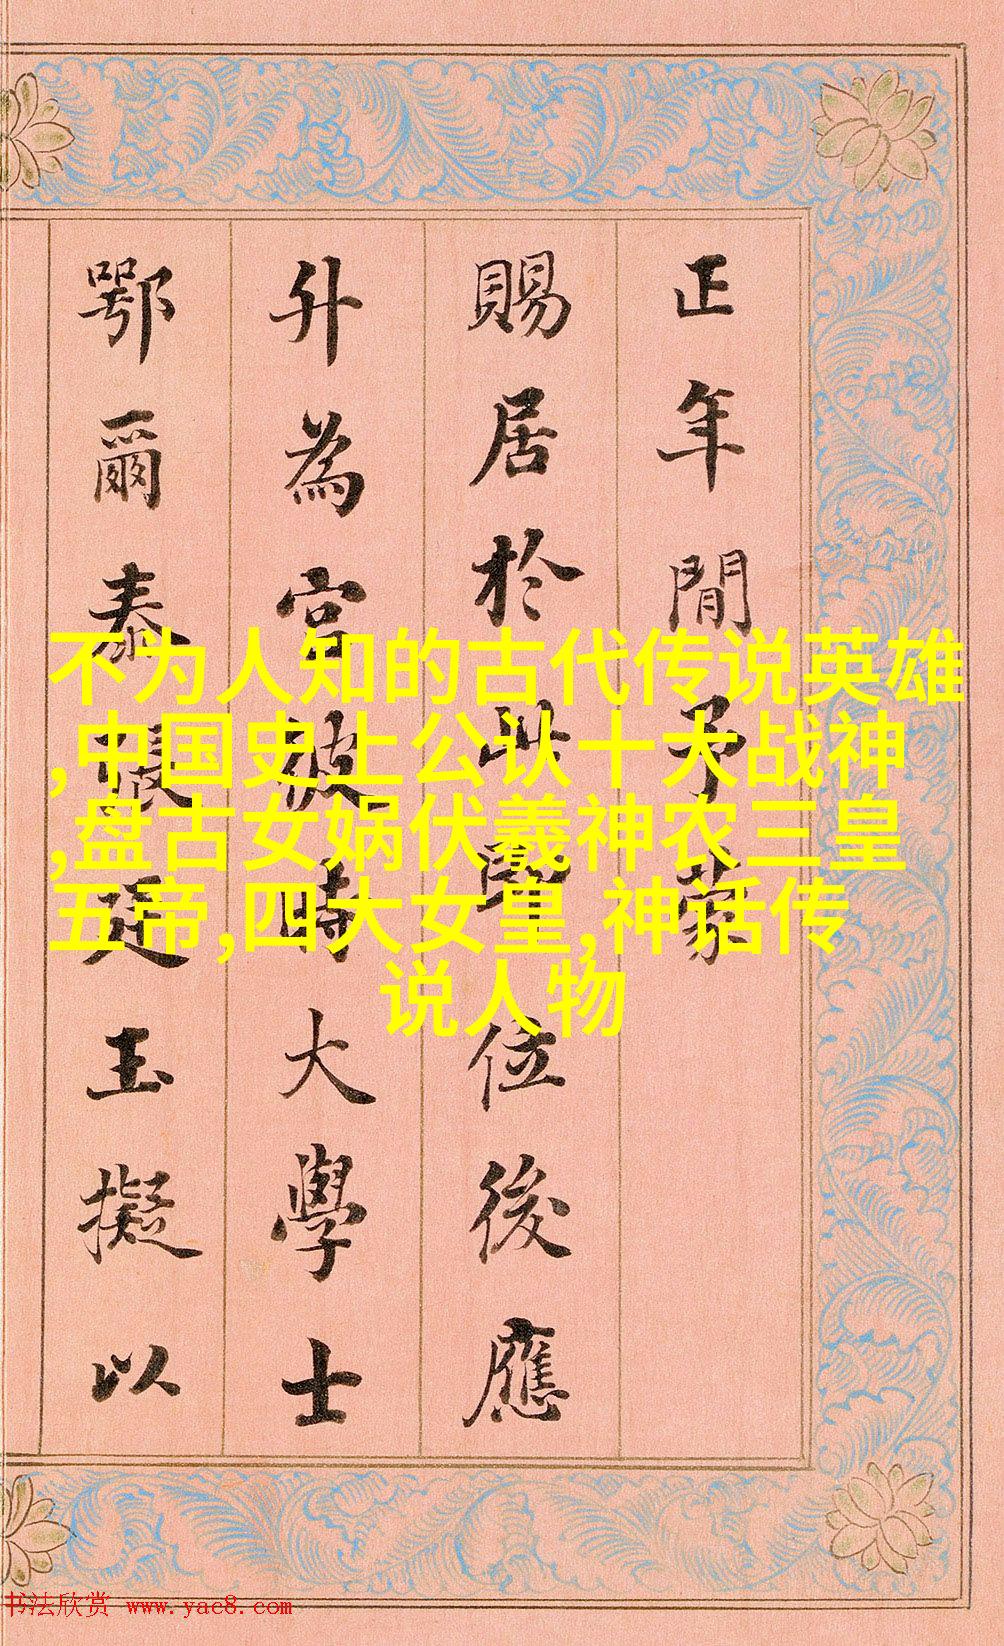 正年間予蒙
賜居於此位後應
升為宮彼時大學士
鄂爾泰張廷玉擬以
不为人知的古代传说英雄
,中国史上公认十大战神
,盘古女娲伏羲神农三皇
五帝,四大女皇,神话传
说人物
书法欣赏 www.yac8.com